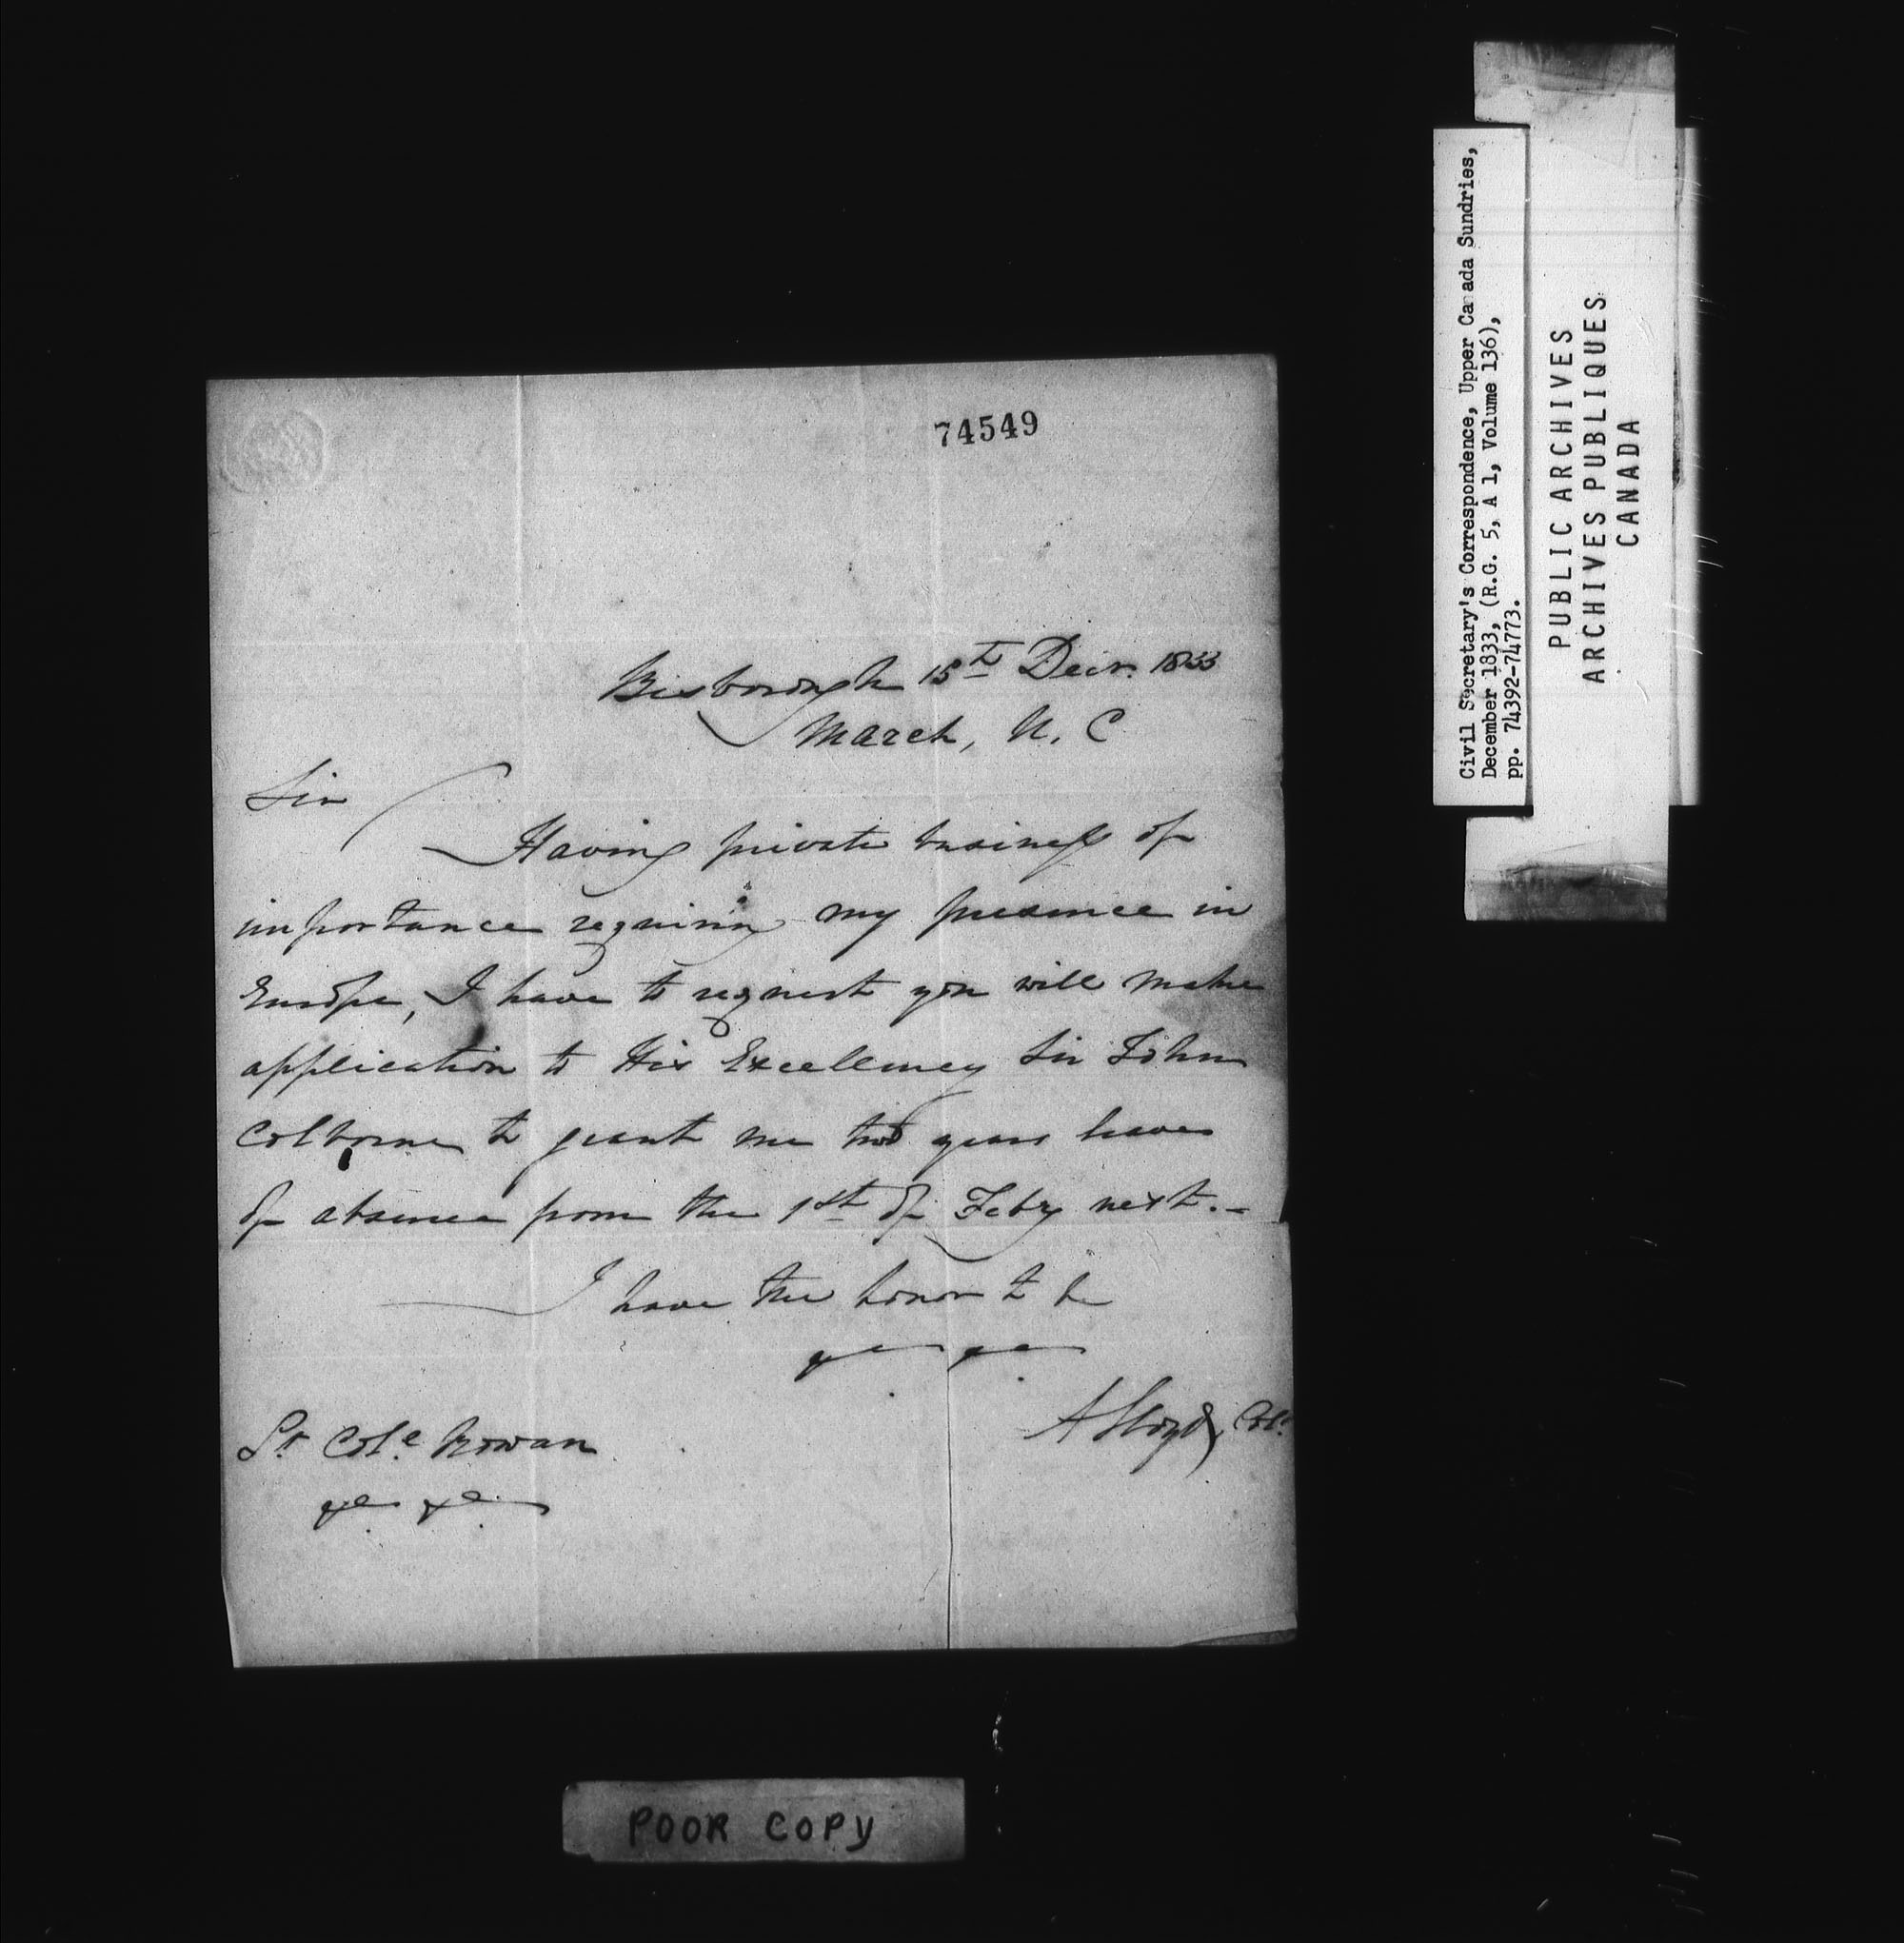 74549
Bessborough 15th Decr. 1833
March, U. C
Sir
Having private business of
importance requiring my presence in
Europe, I have to request you will make
application to His Excellency Sir John
Colborne to grant me two years leave
of absence from the 1st of Feby next. -
I have the honor to be
&c &c
A Lloyd, Col.
Lt Col. Rowan
&c &c
POOR COPY
Civil Secretary's Correspondence, Upper Canada Sundries,
December 1833, (R.G. 5, A 1, Volume 136),
pp. 74392-74773.
PUBLIC ARCHIVES
ARCHIVES PUBLIQUES
CANADA